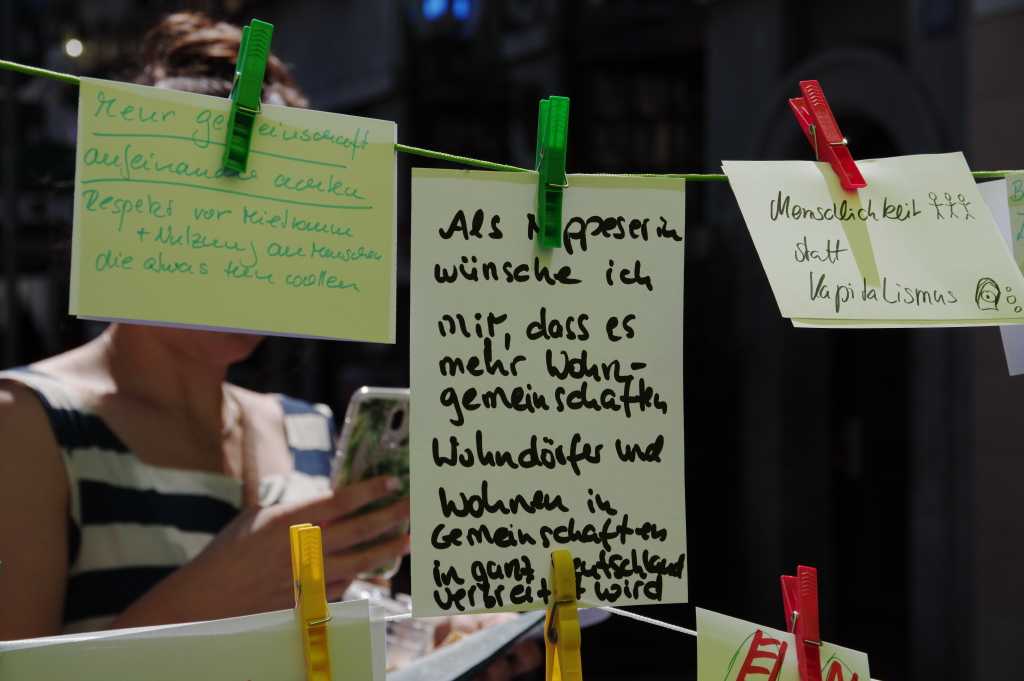 Mehr gemeinschaft
aufeinander achten
Respekt vor Mietraum
+ Nutzung an Menschen
die etwas tun wollen
Als Nippeserin
wünsche ich
mir, dass es
mehr Wohn-
gemeinschaften
Wohndörfer und
Wohnen in
Gemeinschaften
in ganz Deutschland
verbreitet wird
Menschlichkeit
statt
Kapitalismus